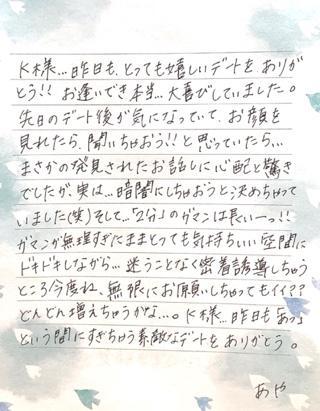 K様…昨日も、とっても嬉しいデートを ありが
とう!! お逢いでき本当…大喜びしていました。
先日のデート後が気になっていて、お顔を
見れたら、聞いちゃおう!! と思っていたら、、、
まさかの発見されたお話しに心配と驚き
でしたが、実は…暗闇にしちゃおうと決めちゃって
いました(笑)そして…「2分」のガマンは長いーっ!!
ガマンが無理すぎにままとっても気持ちいい空間に
ドキドキしながら…迷うことなく密着誘導しちゃう
ところ今度ね、無限にお願いしちゃってもイイ??
どんどん増えちゃうかな…。K様…昨日も「あっ」
という間にすぎちゃう素敵なデートを ありがとう。
あや